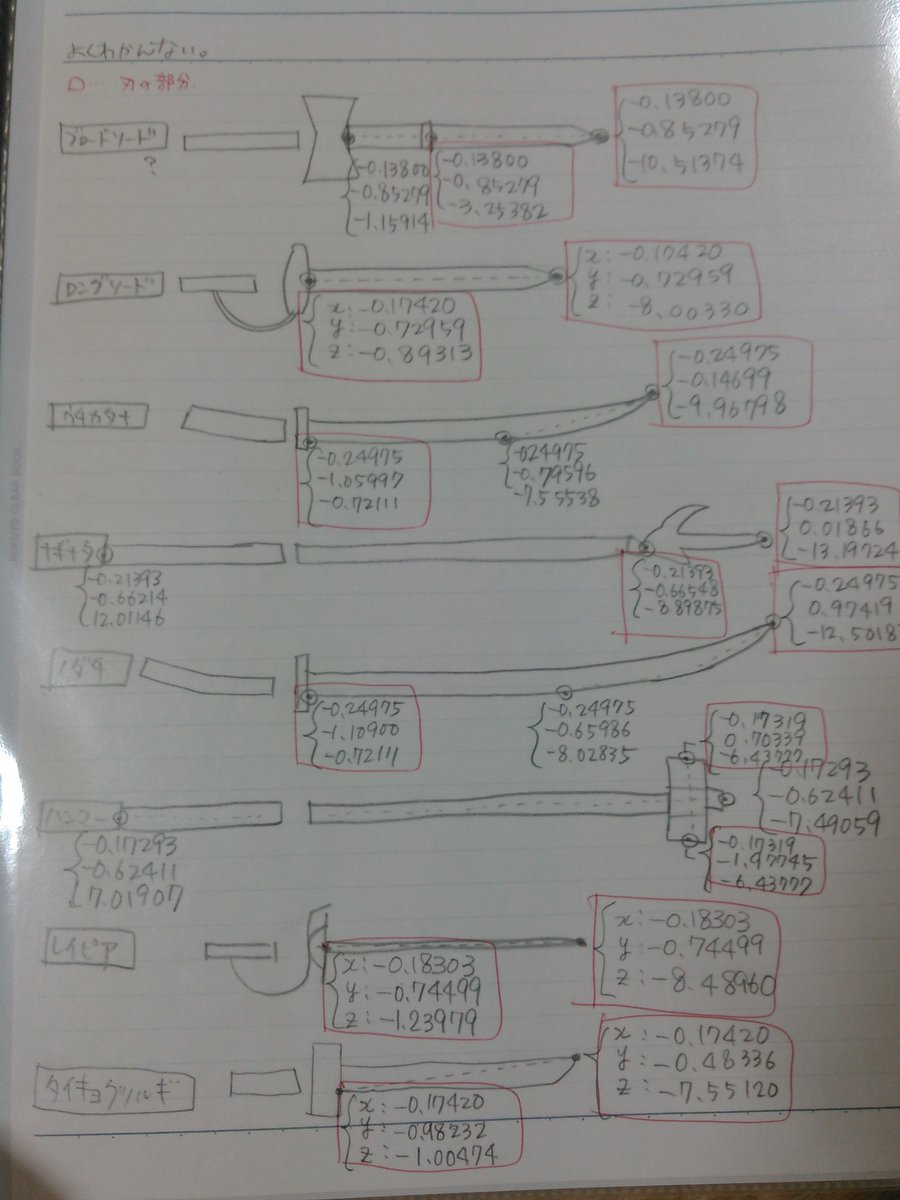 よくわかんない。
□… 刃の部分.
ブロードソード
?
-0.13800
-0.85279
-1.15914
-0.13800
-0.85279
-3.25382
-0.13800
-0.85279
-10.51374
ロングソード
x:-0.17420
y:-0.72959
z:-0.89313
x:-0.17420
y:-0.72959
z:-8.00330
ウチガタナ
-0.24975
-1.05997
-0.72111
-0.24975
-0.79596
-7.55538
-0.24975
-0.14699
-9.96798
ナギナタ
-0.21393
-0.66214
12.01146
-0.21393
-0.66548
-8.89875
-0.21393
0.01866
-13.19724
ノダチ
-0.24975
-1.10900
-0.72111
-0.24975
-0.65986
-8.02835
-0.24975
0.97419
-12.5018
ハンマー
-0.17293
-0.62411
7.01907
-0.17319
0.70339
-6.43777
-0.17293
-0.62411
-7.49059
-0.17319
-1.97745
-6.43777
レイピア
x:-0.18303
y:-0.74499
z:-1.23979
x:-0.18303
y:-0.74499
z:-8.48960
タイキョクツルギ
x:-0.17420
y:-0.98232
z:-1.00474
x:-0.17420
y:-0.48336
z:-7.55120